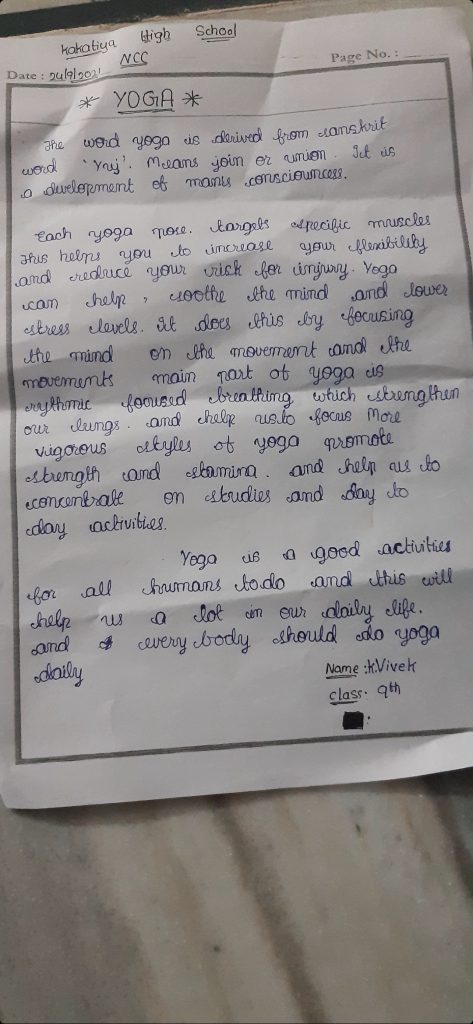 Kakatiya High School
NCC
Page No. :
Date : 24/9/2021
* YOGA *
The word yoga is derived from sanskrit
word 'Yuj'. Means join or union. It is
a development of mans consciouncess.
Each yoga pose. targets specific muscles
This helps you to increase your flexibility
and reduce your risk for injury. Yoga
can help, soothe the mind and lower
stress levels. It does this by focusing
the mind on the movement and the
movements main part of yoga is
rythmic focused breathing which strengthen
our lungs. and help us to focus More
vigorous styles of yoga promote
strength and stamina. and help us to
concentrate on studies and day to
day activities.
Yoga is a good activities
for all humans to do and this will
help us a lot in our daily life.
and every body should do yoga
daily
Name : K.Vivek
class. 9th